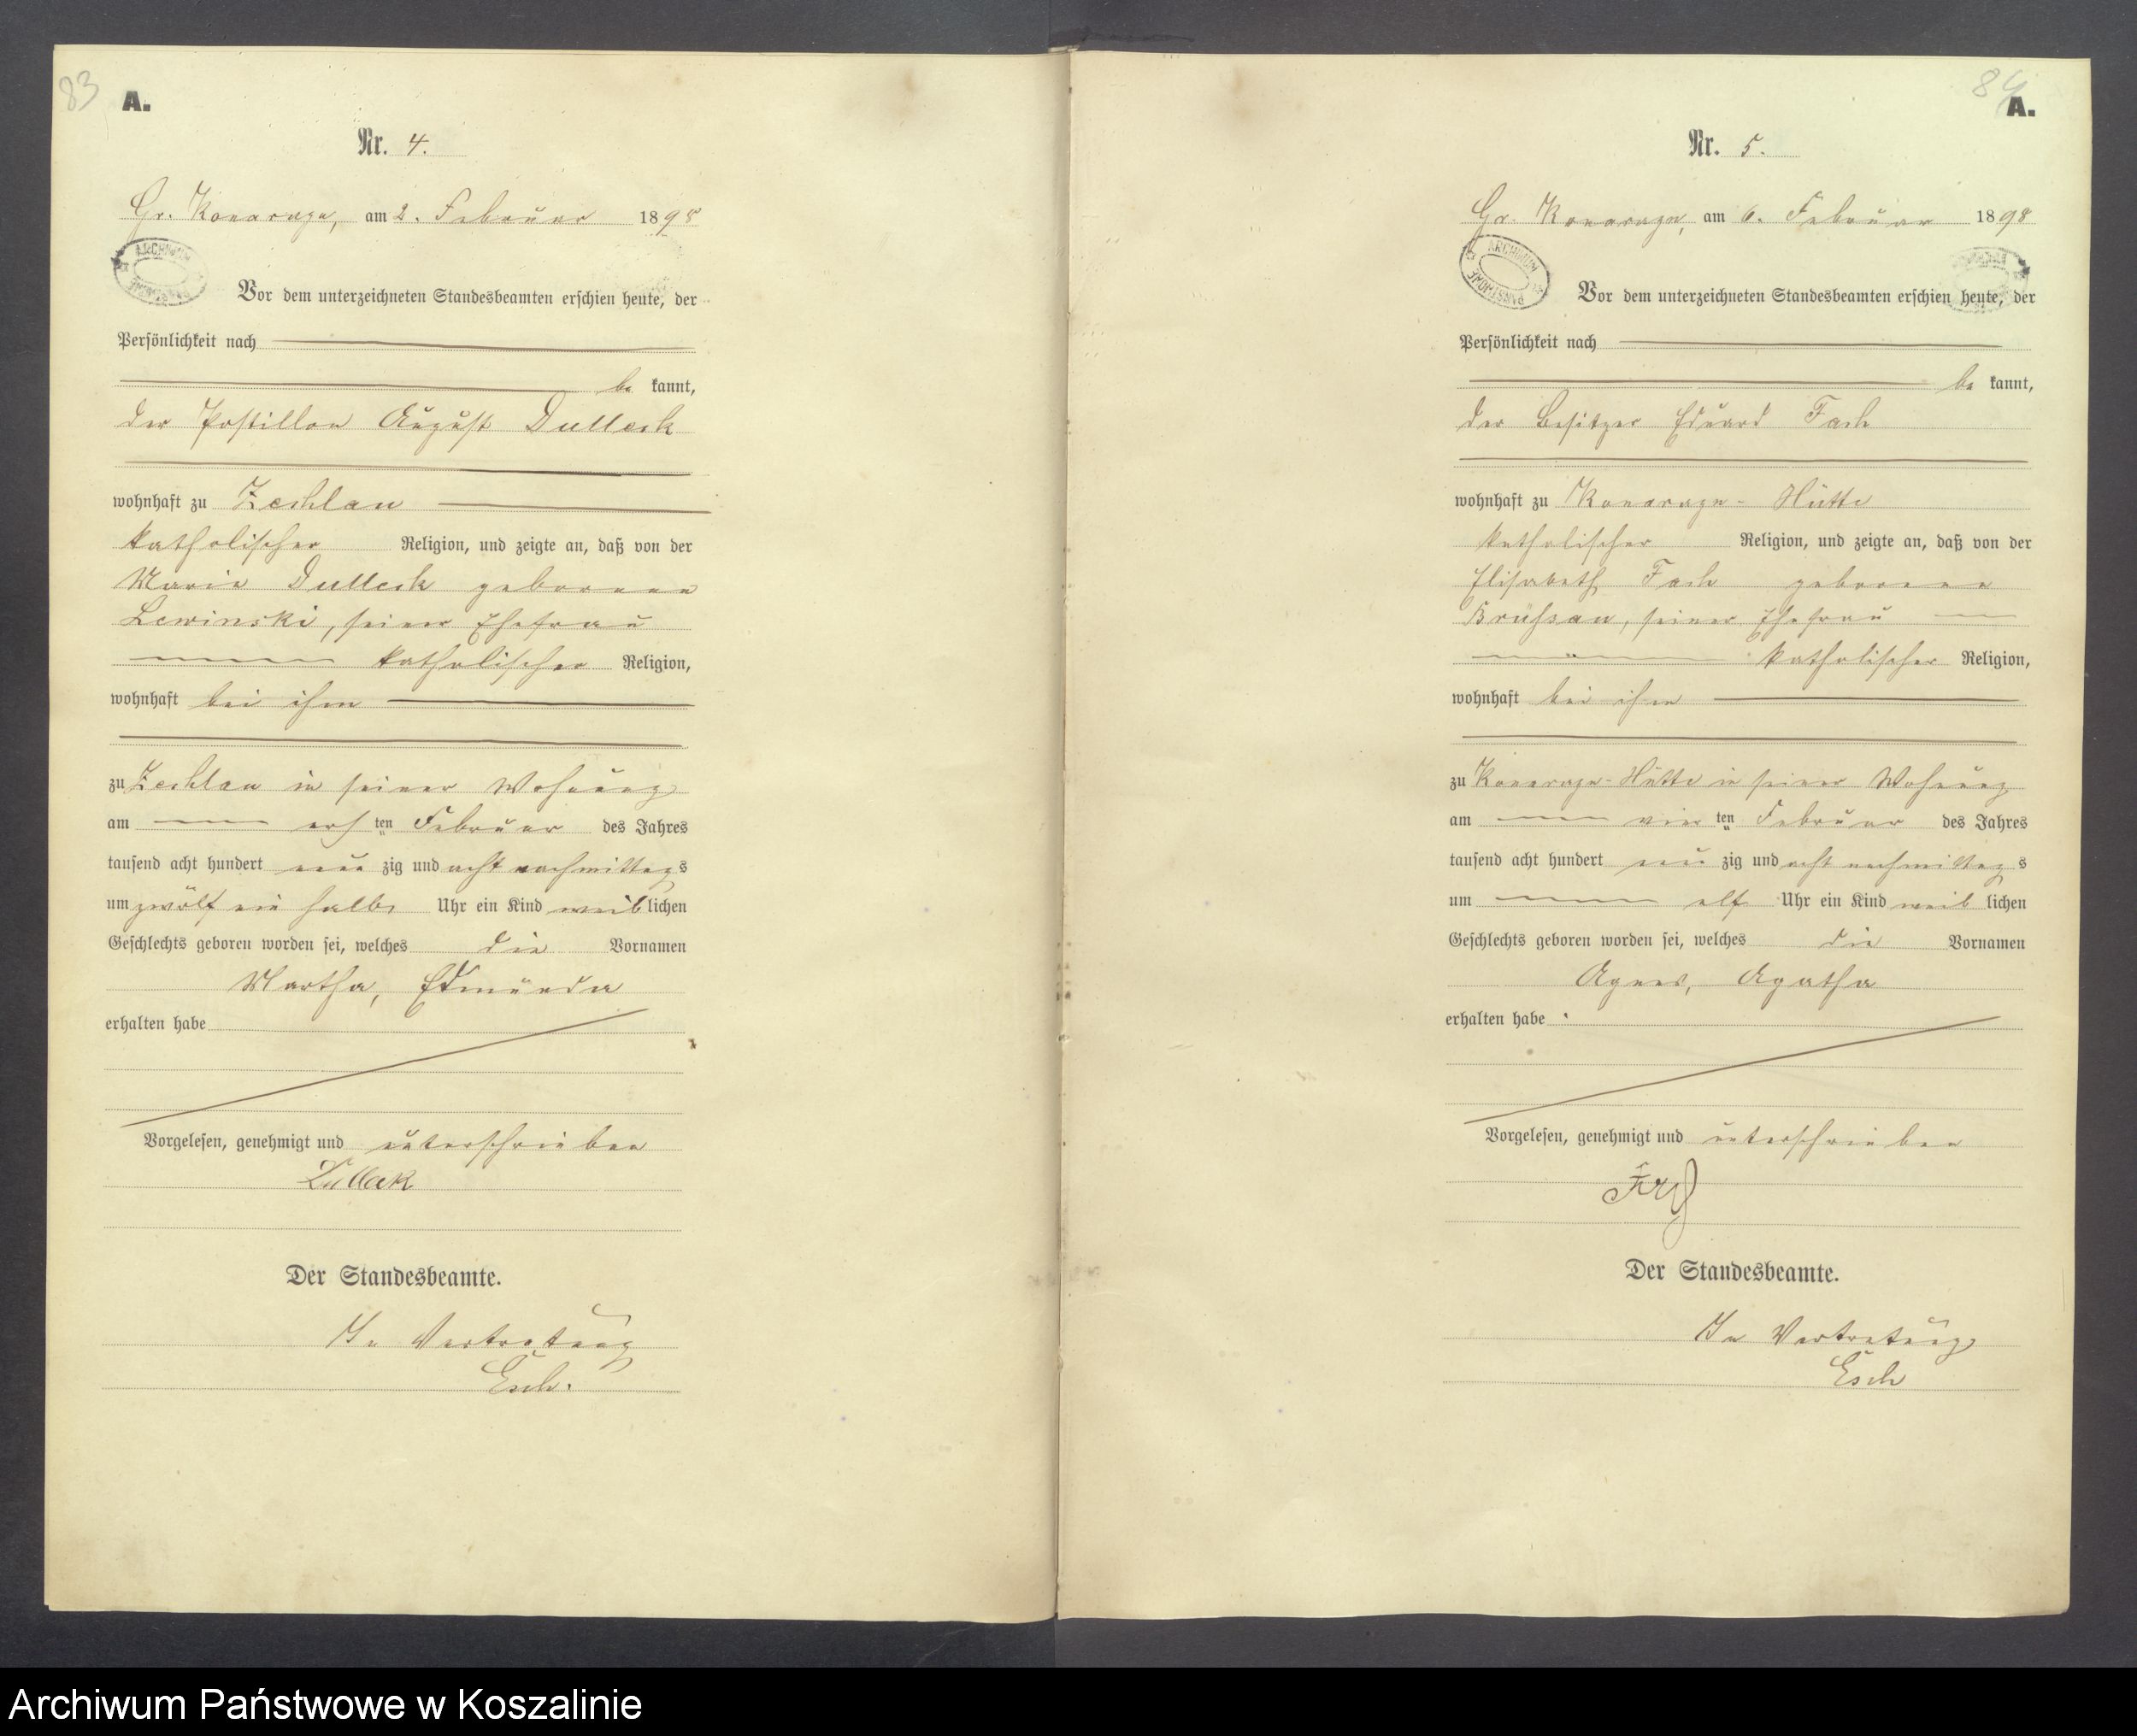 83
A.
Nr. 4.
Gr. Konarzyn, am 2. Februar 1898
ARCHIWUM PAŃSTWOWE
Vor dem unterzeichneten Standesbeamten erschien heute, der
Persönlichkeit nach
be kannt,
der Postillon August Dulleck
wohnhaft zu Zechlau
katholischer Religion, und zeigte an, daß von der
Maria Dulleck geborenen
Lewinski, seiner Ehefrau
katholischer Religion,
wohnhaft bei ihm
zu Zechlau in seiner Wohnung
am ersten Februar des Jahres
tausend acht hundert neunzig und acht nachmittags
um zwölf ein halb Uhr ein Kind weiblichen
Geschlechts geboren worden sei, welches die Vornamen
Martha, Edmunda
erhalten habe
Vorgelesen, genehmigt und unterschrieben
Dulleck
Der Standesbeamte.
In Vertretung
Esch.
84
A.
Nr. 5.
Gr. Konarzyn, am 6. Februar 1898
ARCHIWUM PAŃSTWOWE
Vor dem unterzeichneten Standesbeamten erschien heute, der
Persönlichkeit nach
be kannt,
der Besitzer Eduard
wohnhaft zu Konarzyn-Hütte
katholischer Religion, und zeigte an, daß von der
Elisabeth geborenen
seiner Ehefrau
katholischer Religion,
wohnhaft bei ihm
zu Konarzyn-Hütte in seiner Wohnung
am vierten Februar des Jahres
tausend acht hundert neunzig und acht nachmittags
um elf Uhr ein Kind weiblichen
Geschlechts geboren worden sei, welches die Vornamen
Agnes, Agatha
erhalten habe
Vorgelesen, genehmigt und unterschrieben
Der Standesbeamte.
In Vertretung
Esch
Archiwum Państwowe w Koszalinie